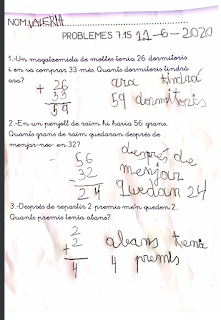 NOM: VALERIA
PROBLEMES 7.15 11-6-2020
1.-Un magatzemista de mobles tenia 26 dormitoris
i en va comprar 33 més. Quants dormitoris tindrà
ara?
+ 26
33
59
ara tindrá
59 dormitoris
2.-En un penjoll de raïm hi havia 56 grans.
Quants grans de raïm quedaran després de
menjar-nos- en 32?
- 56
32
24
després de
menjar
quedan 24
3.-Després de repartir 2 premis me'n queden 2.
Quants premis tenia abans?
2
+ 2
4
abans tenia
4 premis